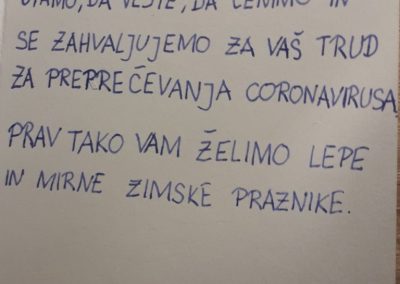 DA VESTE, DA CENIMO IN
SE ZAHVALJUJEMO ZA VAŠ TRUD
ZA PREPREČEVANJA CORONAVIRUSA,
PRAV TAKO VAM ŽELIMO LEPE
IN MIRNE ZIMSKE PRAZNIKE.